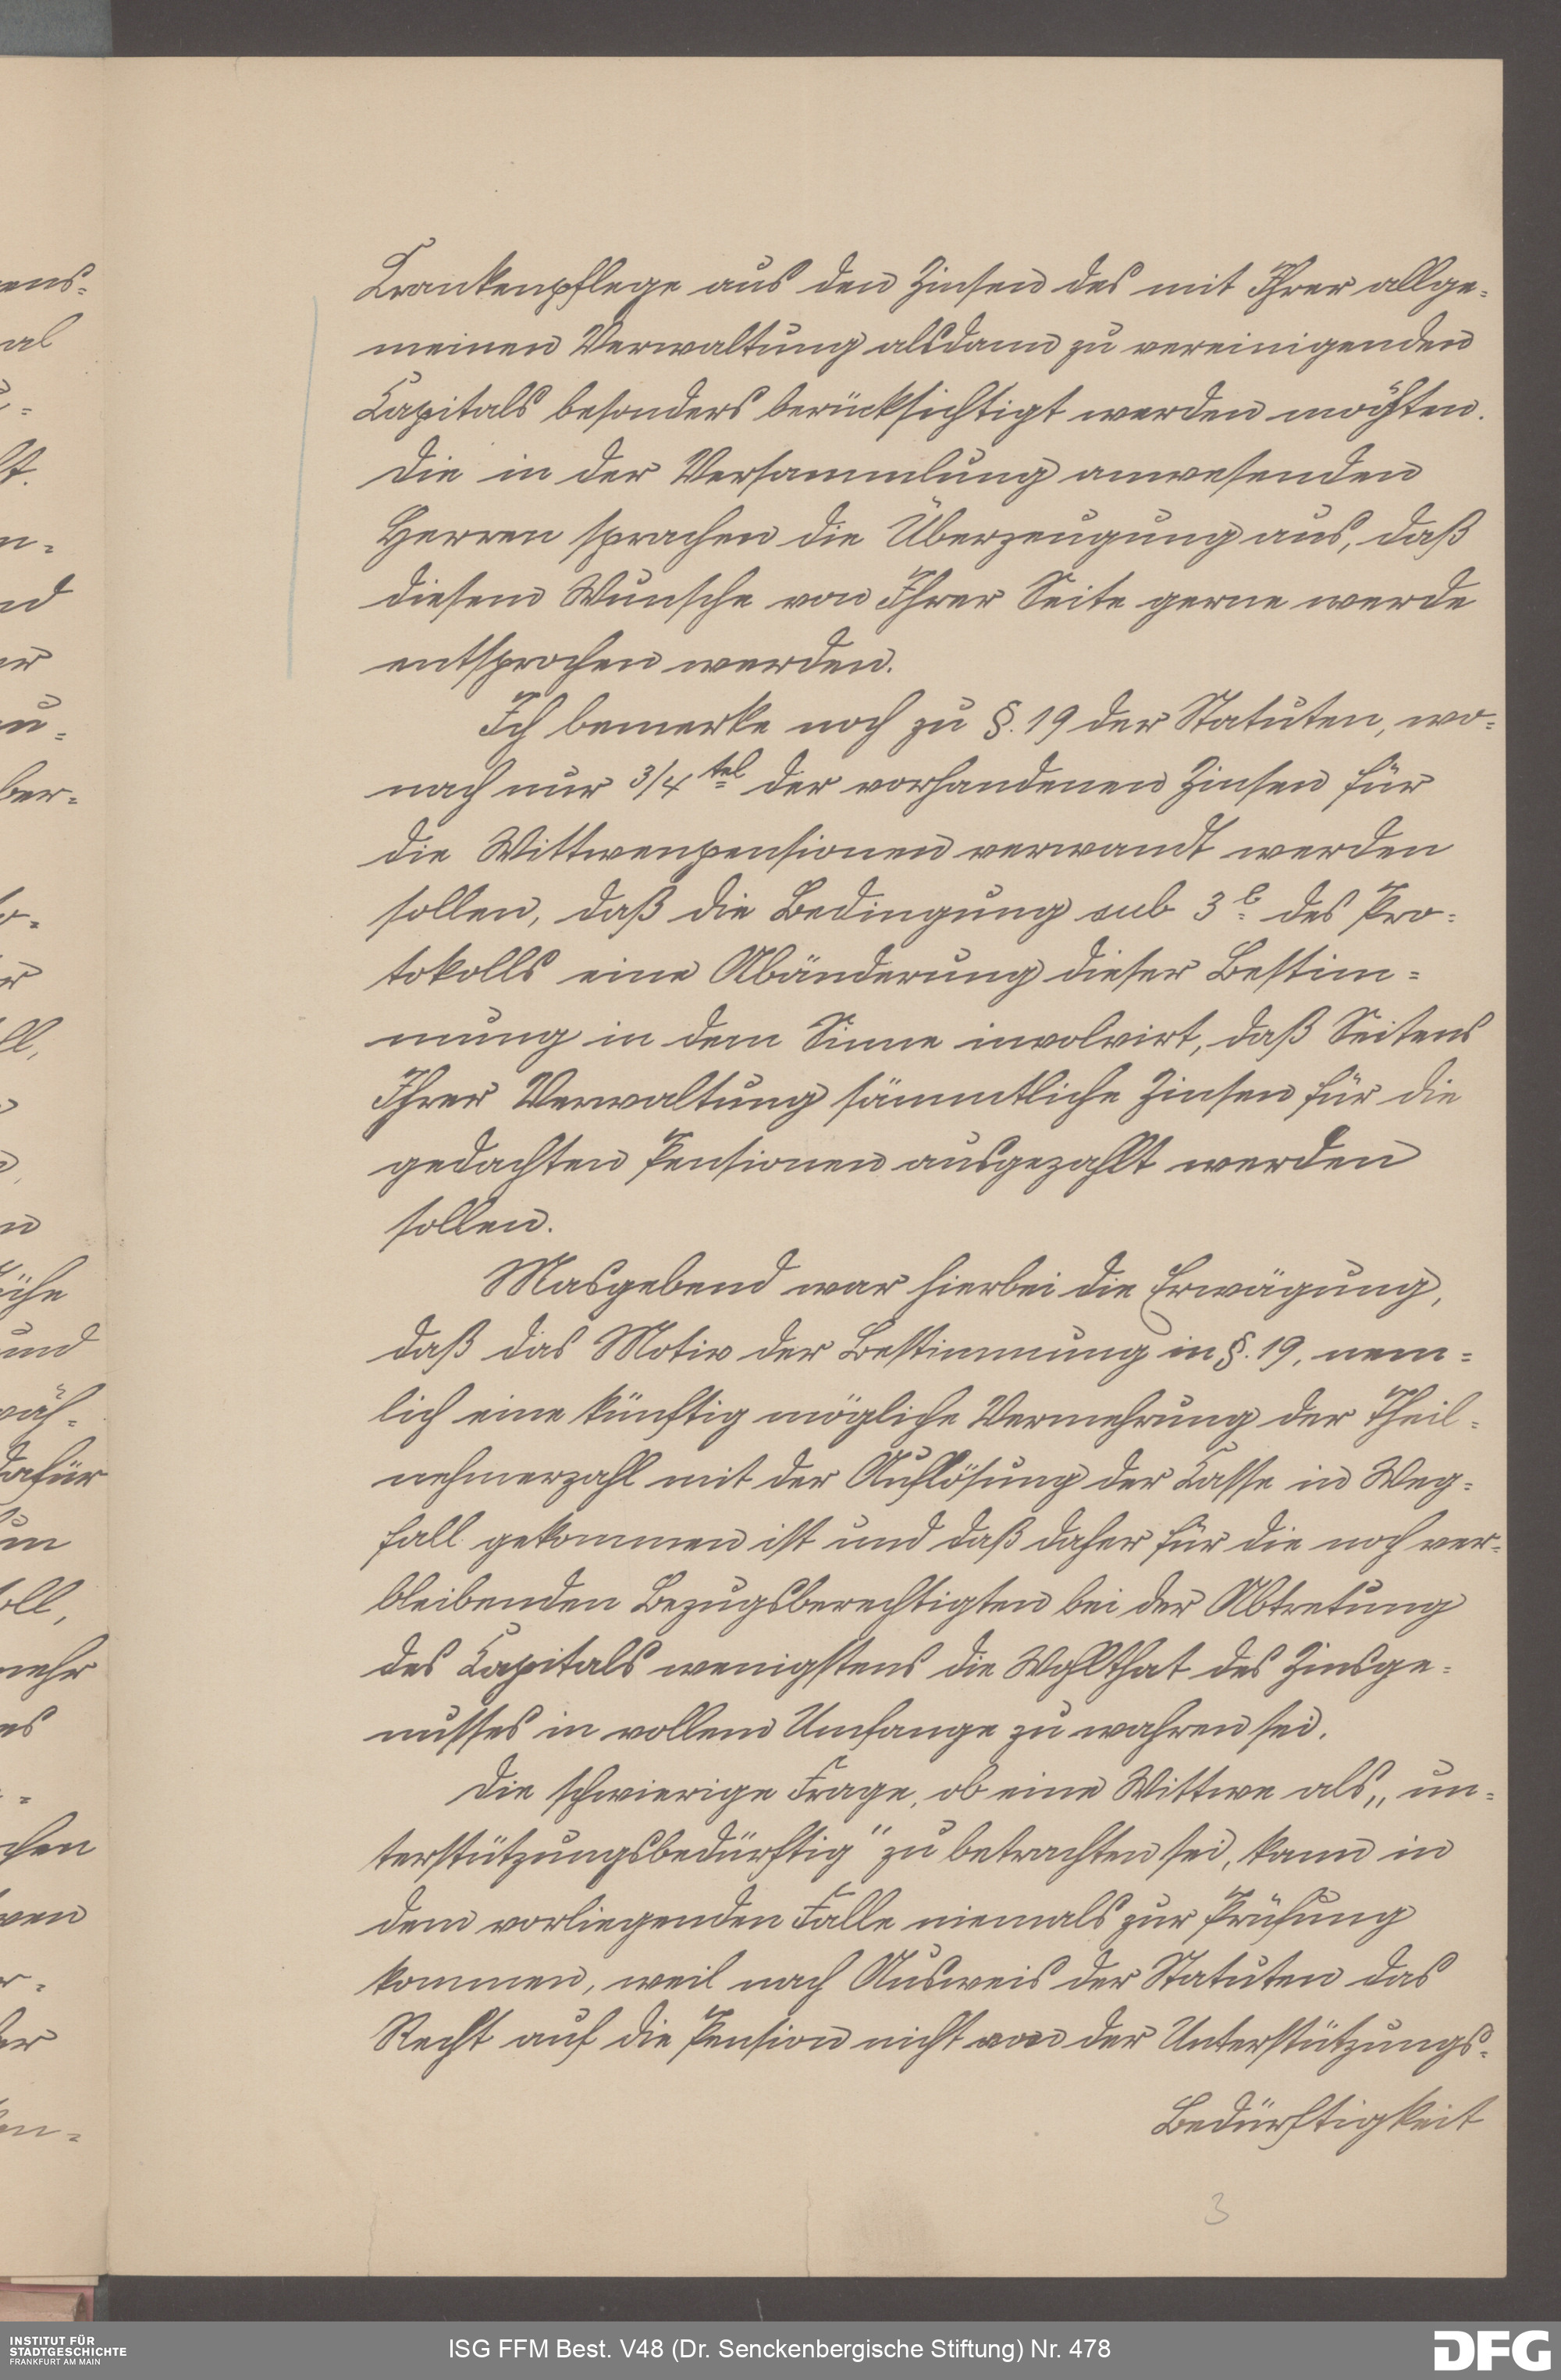 Krankenpflege aus den Zinsen des mit Ihrer allge-
meinen Verwaltung alsdann zu vereinigenden
Capitals besonders berücksichtigt werden möchten.
Die in der Versammlung anwesenden
Herren sprachen die Überzeugung aus, daß
diesem Wunsche von Ihrer Seite gerne werde
entsprochen werden.
Ich bemerke noch zu §. 19 der Statuten, wo-
nach nur 3/4tel der vorhandenen Zinsen für
die Wittwenpensionen verwandt werden
sollen, daß die Bedingung sub 3b des Pro-
tokolls eine Abänderung dieser Bestim-
mung in dem Sinne involvirt, daß Seitens
Ihrer Verwaltung sämmtliche Zinsen für die
gedachten Pensionen ausgezahlt werden
sollen.
Masgebend war hierbei die Erwägung,
daß das Motiv der Bestimmung in §. 19, nem-
lich eine künftig mögliche Vermehrung der Theil-
nehmerzahl mit der Auflösung der Casse in Weg-
fall gekommen ist und daß daher für die noch ver-
bleibenden Bezugsberechtigten bei der Abtretung
des Capitals wenigstens die Wohlthat des Zinsge-
nusses in vollem Umfange zu wahren sei.
Die schwierige Frage, ob eine Wittwe als „un-
terstützungsbedürftig" zu betrachten sei, kann in
dem vorliegenden Falle niemals zur Prüfung
kommen, weil nach Ausweis der Statuten das
Recht auf die Pension nicht von der Unterstützungs-
Bedürftigkeit
3
INSTITUT FÜR
STADTGESCHICHTE
FRANKFURT AM MAIN
ISG FFM Best. V48 (Dr. Senckenbergische Stiftung) Nr. 478
DFG